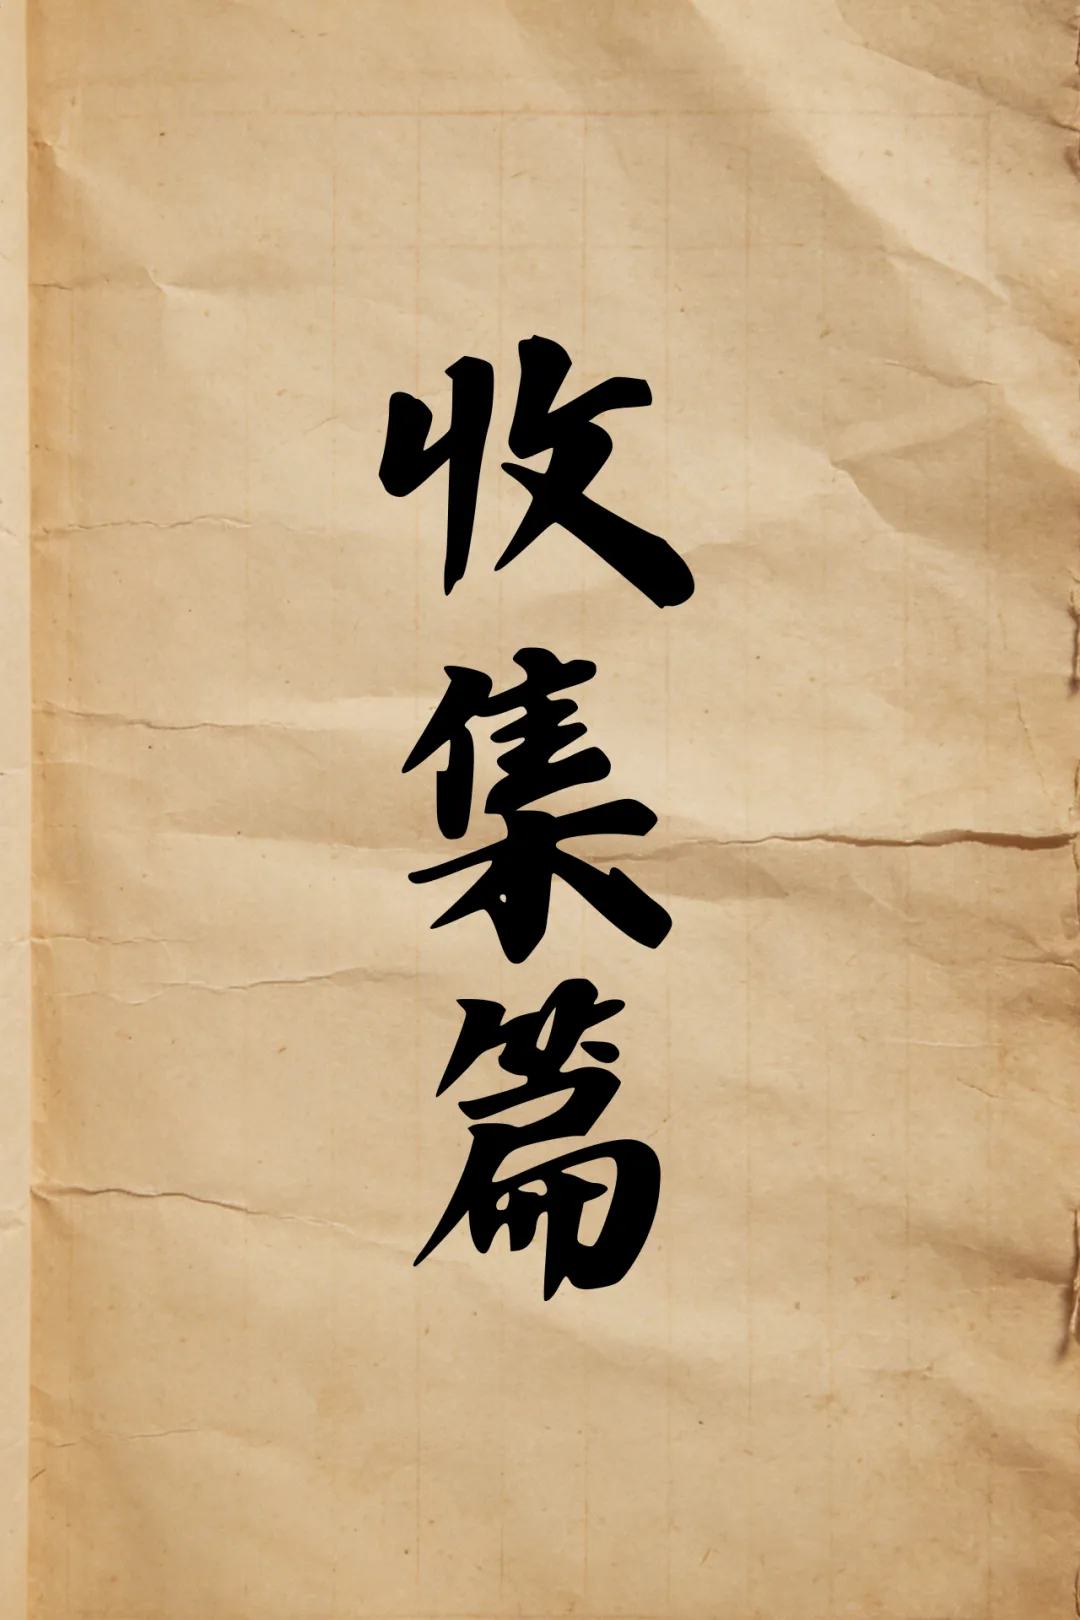 收集篇